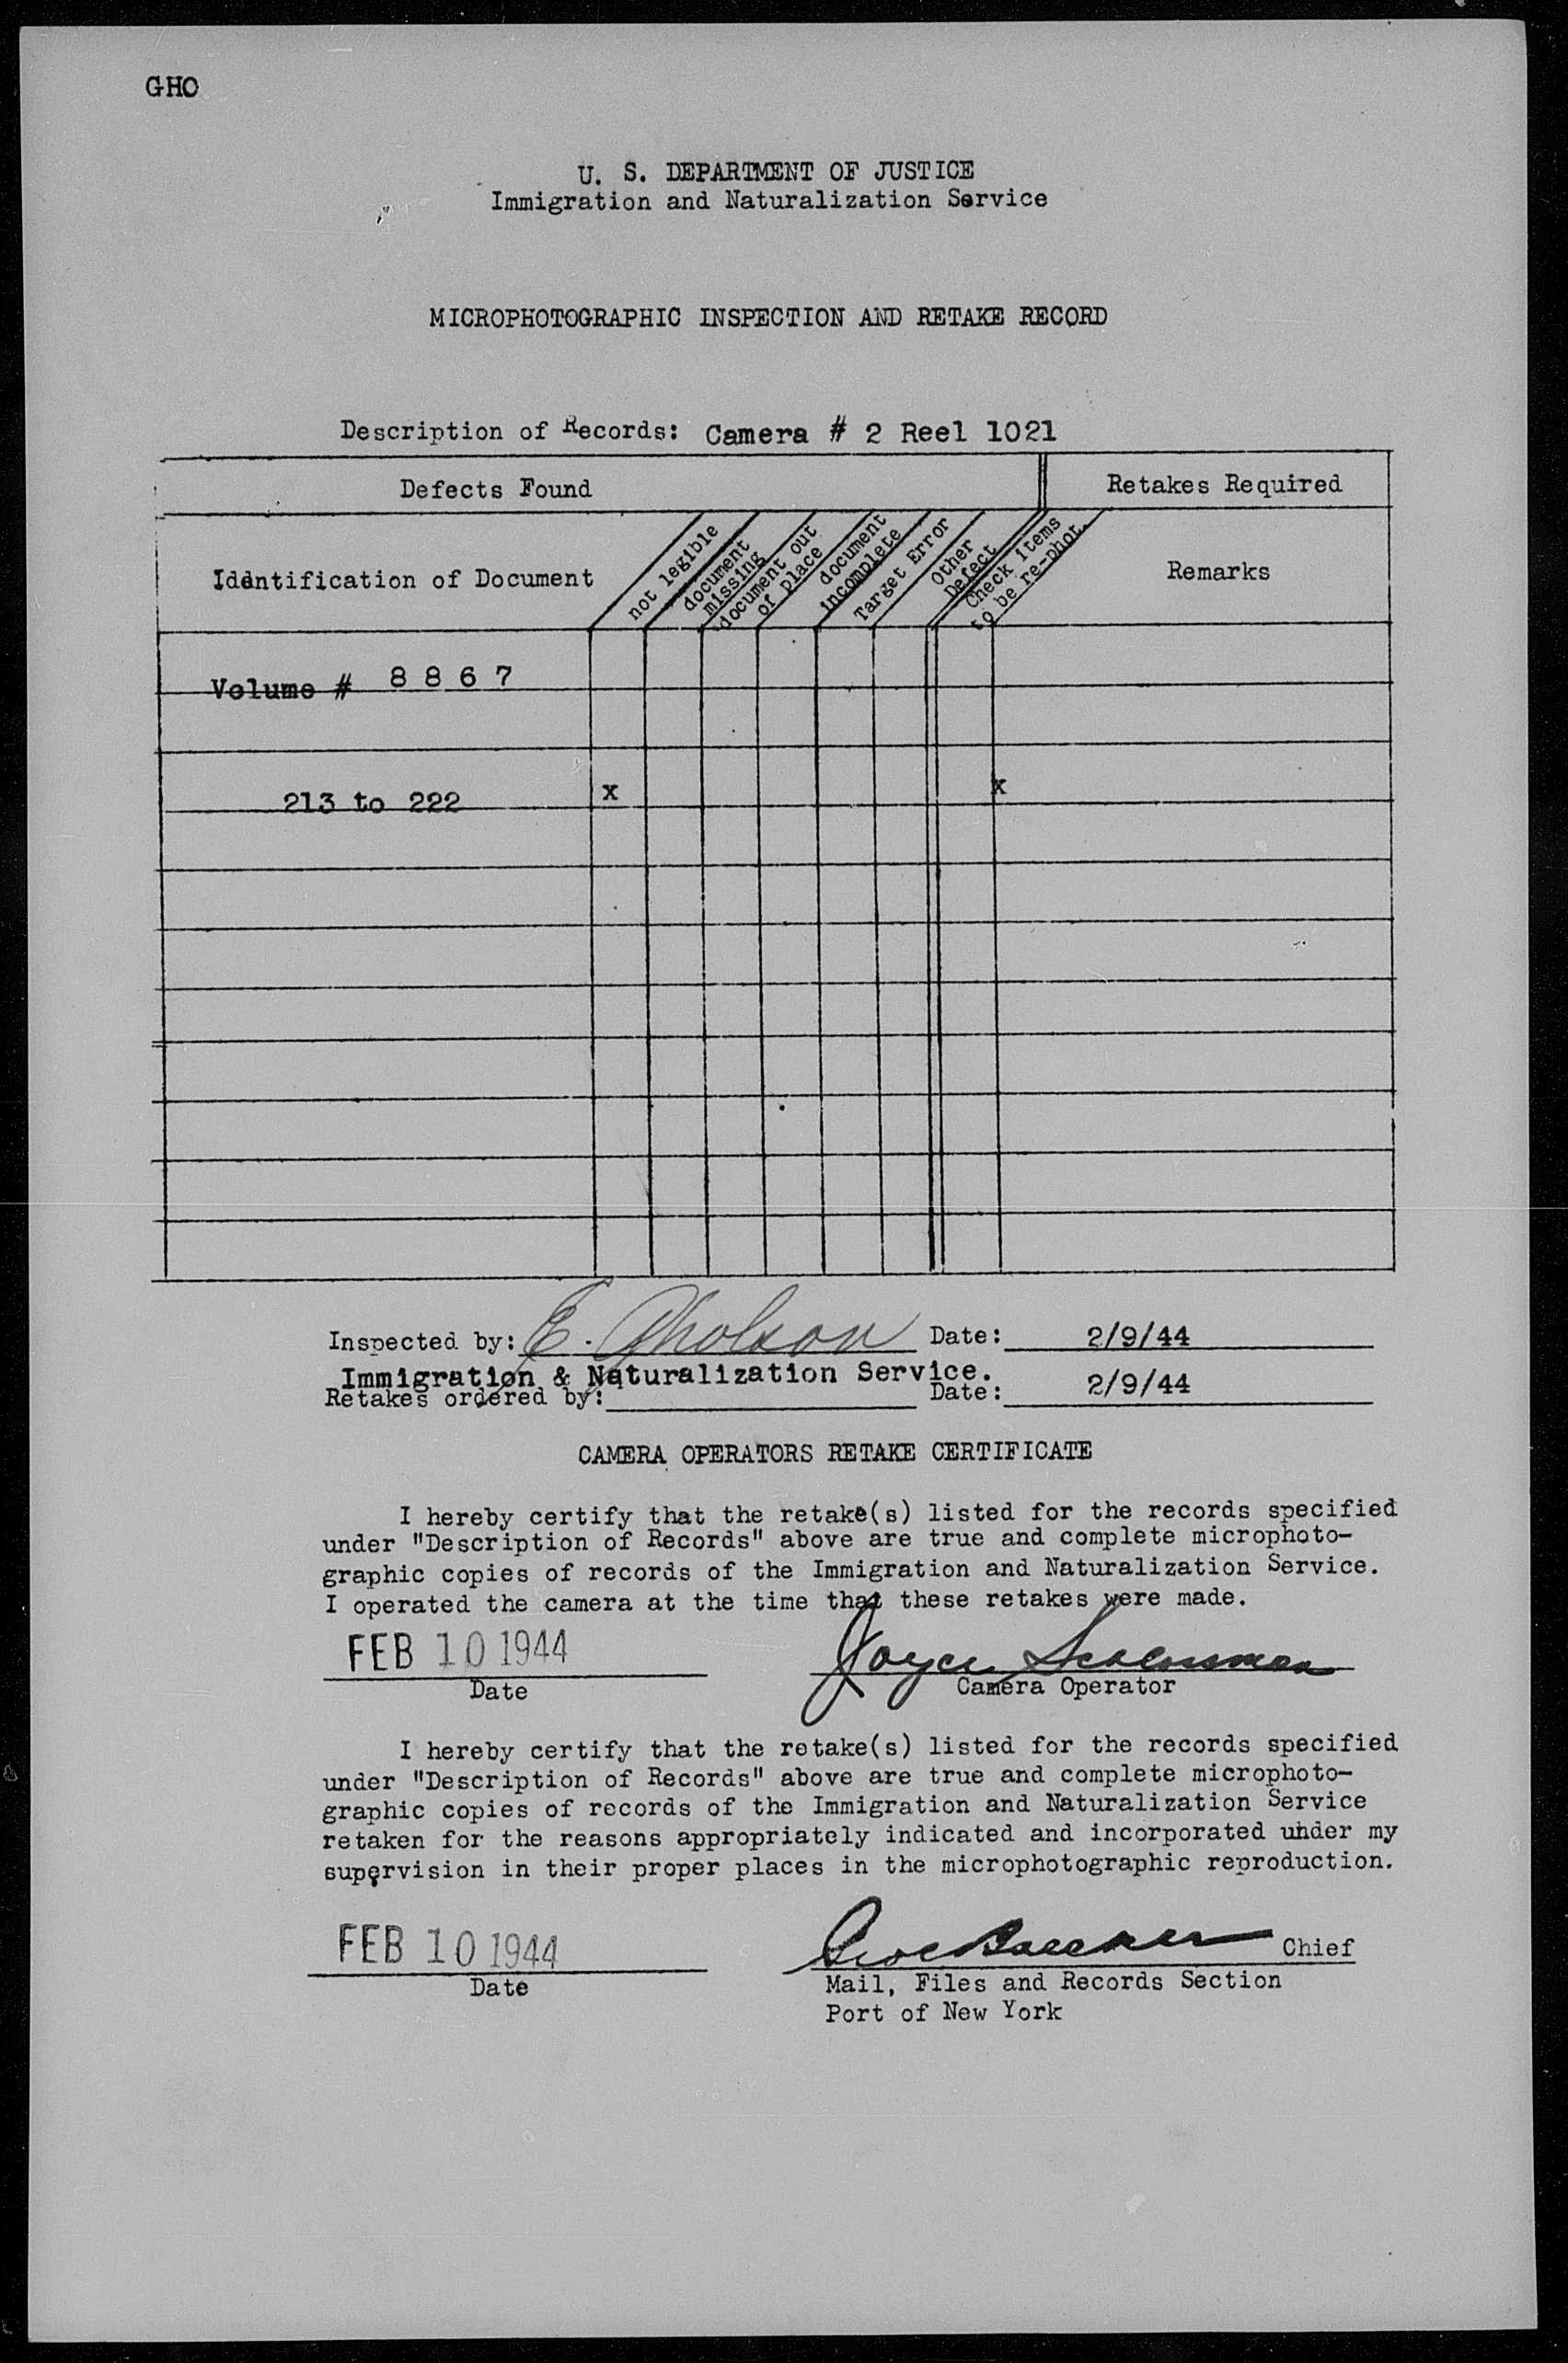 GHO
U. S. DEPARTMENT OF JUSTICE
Immigration and Naturalization Service
MICROPHOTOGRAPHIC INSPECTION AND RETAKE RECORD
Description of Records: Camera # 2 Reel 1021
Defects Found
Retakes Required
Idantification of Document
not legible
document missing
document out of place
document incomplete
Target Error
Other Defect
Check items to be re-phot.
Remarks
Volume # 8 8 6 7
213 to 222 x x
Inspected by: E. Gholson Date: 2/9/44
Immigration & Naturalization Service.
Retakes ordered by: Date: 2/9/44
CAMERA OPERATORS RETAKE CERTIFICATE
I hereby certify that the retake(s) listed for the records specified
under "Description of Records" above are true and complete microphoto-
graphic copies of records of the Immigration and Naturalization Service.
I operated the camera at the time that these retakes were made.
FEB 10 1944
Joyce
Date
Camera Operator
I hereby certify that the retake(s) listed for the records specified
under "Description of Records" above are true and complete microphoto-
graphic copies of records of the Immigration and Naturalization Service
retaken for the reasons appropriately indicated and incorporated under my
supervision in their proper places in the microphotographic reproduction.
FEB 10 1944
Chief
Date
Mail, Files and Records Section
Port of New York